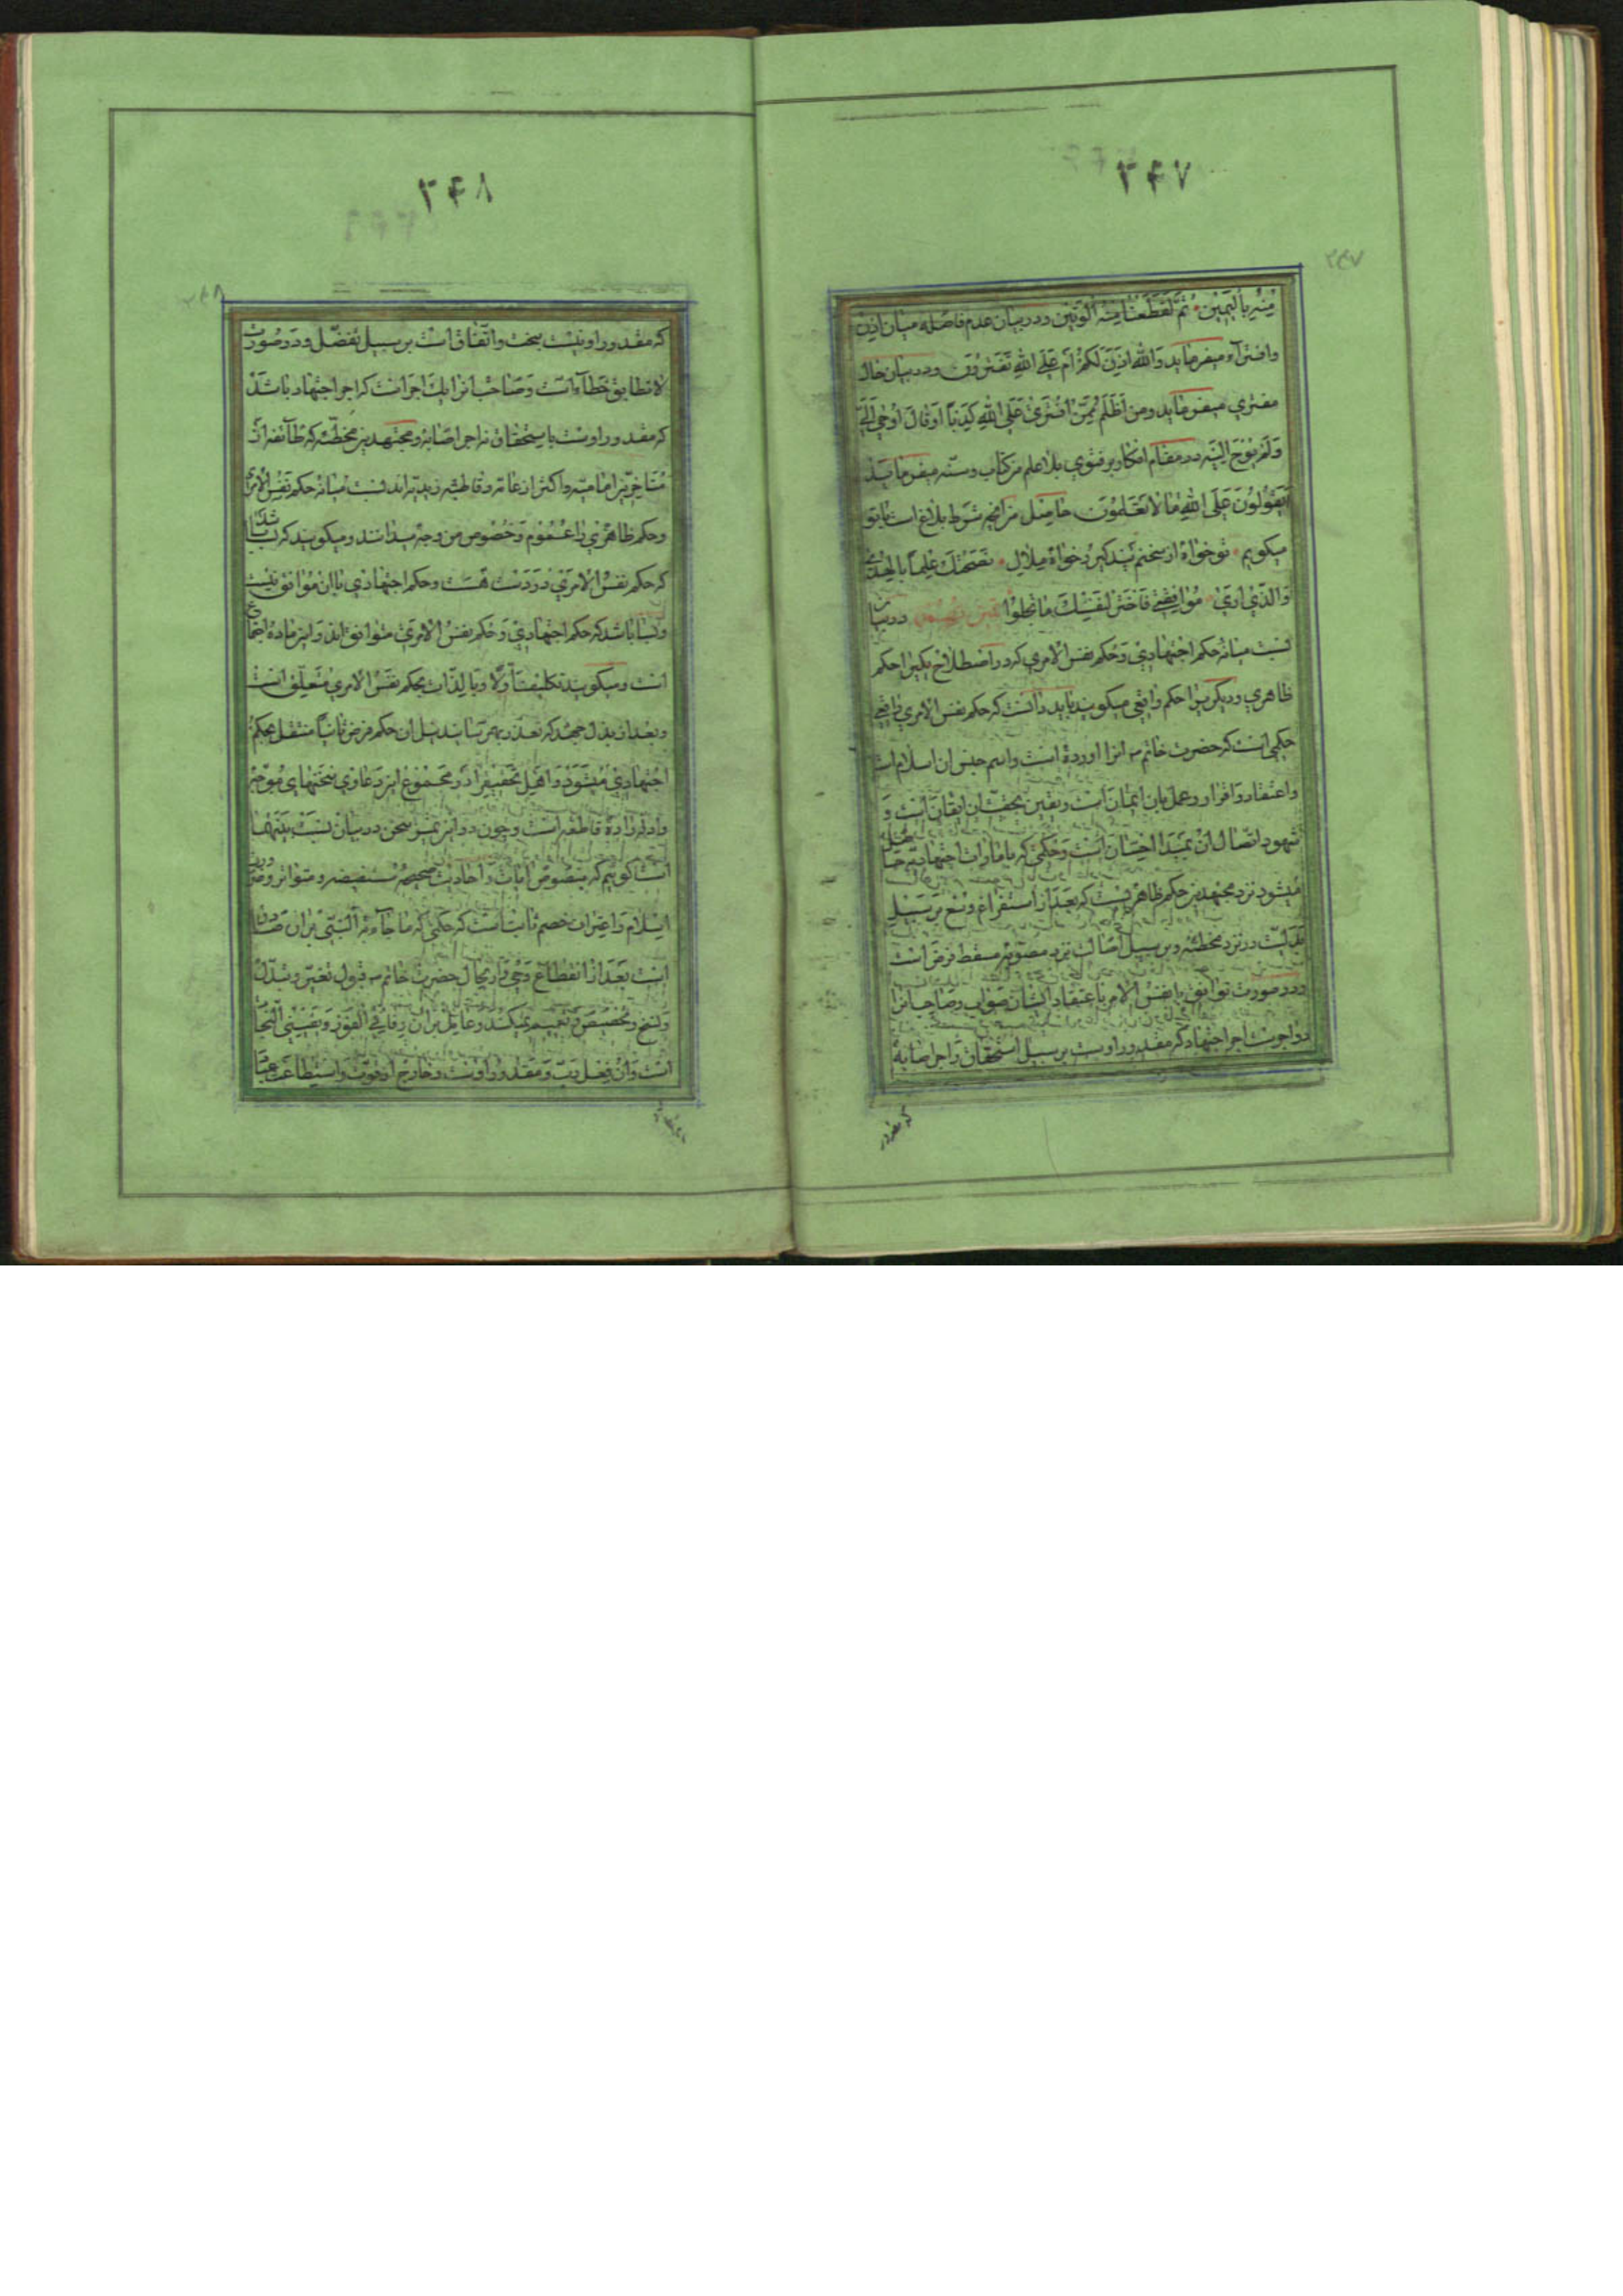 ۳۴۷
۳۴۷
منه باليمين ثمّ لقطعنا منه الوتين و در بيان عدم فاصله ميان اذن
وافتراء ميفرمايد والله اذن لكم ام على الله تفترون و در بيان حال
مفتري ميفرمايد ومن اظلم ممّن افترى على الله كذبا او قال اوحي اليّ
ولم يوح اليه در مقام انكار بر فتوي بلا علم من كتاب و سنّه ميفرمايد
اتقولون على الله ما لا تعلمون حاصل من انچه شرط بلاغ است با تو
ميكويم تو خواه از سخنم پند كير و خواه ملال نصحتك علما بالهوى
والذي ارى مخالفتي فاختر لنفسك ما يحلوا در بيان
نسبت ميانه حكم اجتهادي وحكم نفس الامري كه در اصطلاح يكيرا حكم
ظاهري و ديكريرا حكم واقعي ميكويند بايد دانست كه حكم نفس الامري واقعي
حكمي است كه حضرت خاتم ص انرا اورده است واسم جنس ان اسلام است
واعتقاد و اقرار و عمل بان ايمان است و يقين بحقيّت ان ايقان است و
شهود اتصال ان بمبدا احسان است وحكمي كه بامارات اجتهاديه حاصل
ميشود نزد مجتهدين حكم ظاهريست كه بعد از استفراغ وسع بر سبيل
بدليّت در نزد مخطئه و بر سبيل اصالت نزد مصوّبه مسقط فرض است
و در صورت توافق با نفس الامر باعتقاد ايشان صواب و صاحب انرا
دو اجرست اجر اجتهاد كه مقدور اوست بر سبيل استحقاق و اجر اصابه
كه مقدور
۳۴۸
۳۴۸
كه مقدور او نيست ببخت واتّفاق است بر سبيل تفضّل و در صورت
لا تطابق خطاء است و صاحب انرا يك اجر است كه اجر اجتهاد باشد
كه مقدور اوست باستحقاق نه اجر اصابه ومجتهدين مخطّئه كه طائفه از
متاخّرين اماميّه واكثر از عامّه و قاطبه زيديّه اند نسبت ميانه حكم نفس الامري
وحكم ظاهري را عموم و خصوص من وجه ميدانند و ميكويند كه بسا باشد
كه حكم نفس الامري در دست هست وحكم اجتهادي با ان موافق نيست
و بسا باشد كه حكم اجتهادي وحكم نفس الامري متوافق اند و اين ماده اجتماع
است و ميكويند تكليف اوّلا وبالذّات بحكم نفس الامري متعلّق است
وبعد از بذل جهد كه تعذّر بهم رسانيد نيل ان حكم فرض ثانيا منتقل بحكم
اجتهادي ميشود و اهل تحقيق را در مجموع اين دعاوي سخنهاي موجّه
وادلّه رادّهٔ قاطعه است و چون در اين مبحث سخن در بيان نسبت بينهما
است كوئيم كه بنصوص ايات و احاديث صحيحهٔ مستفيضه و متواتر و ضرورت
اسلام واعتراف خصم ثابت است كه حكمي كه ما جاء به النّبي بران صادق
است بعد از انقطاع وحي وارتحال حضرت خاتم ص قبول تغيّر و تبدّل
ونسخ و تخصيص و تعميم نميكند وعامل بران
است وان فعل ربّ و مقدور اوست وخارج از قوّت واستطاعت عباد